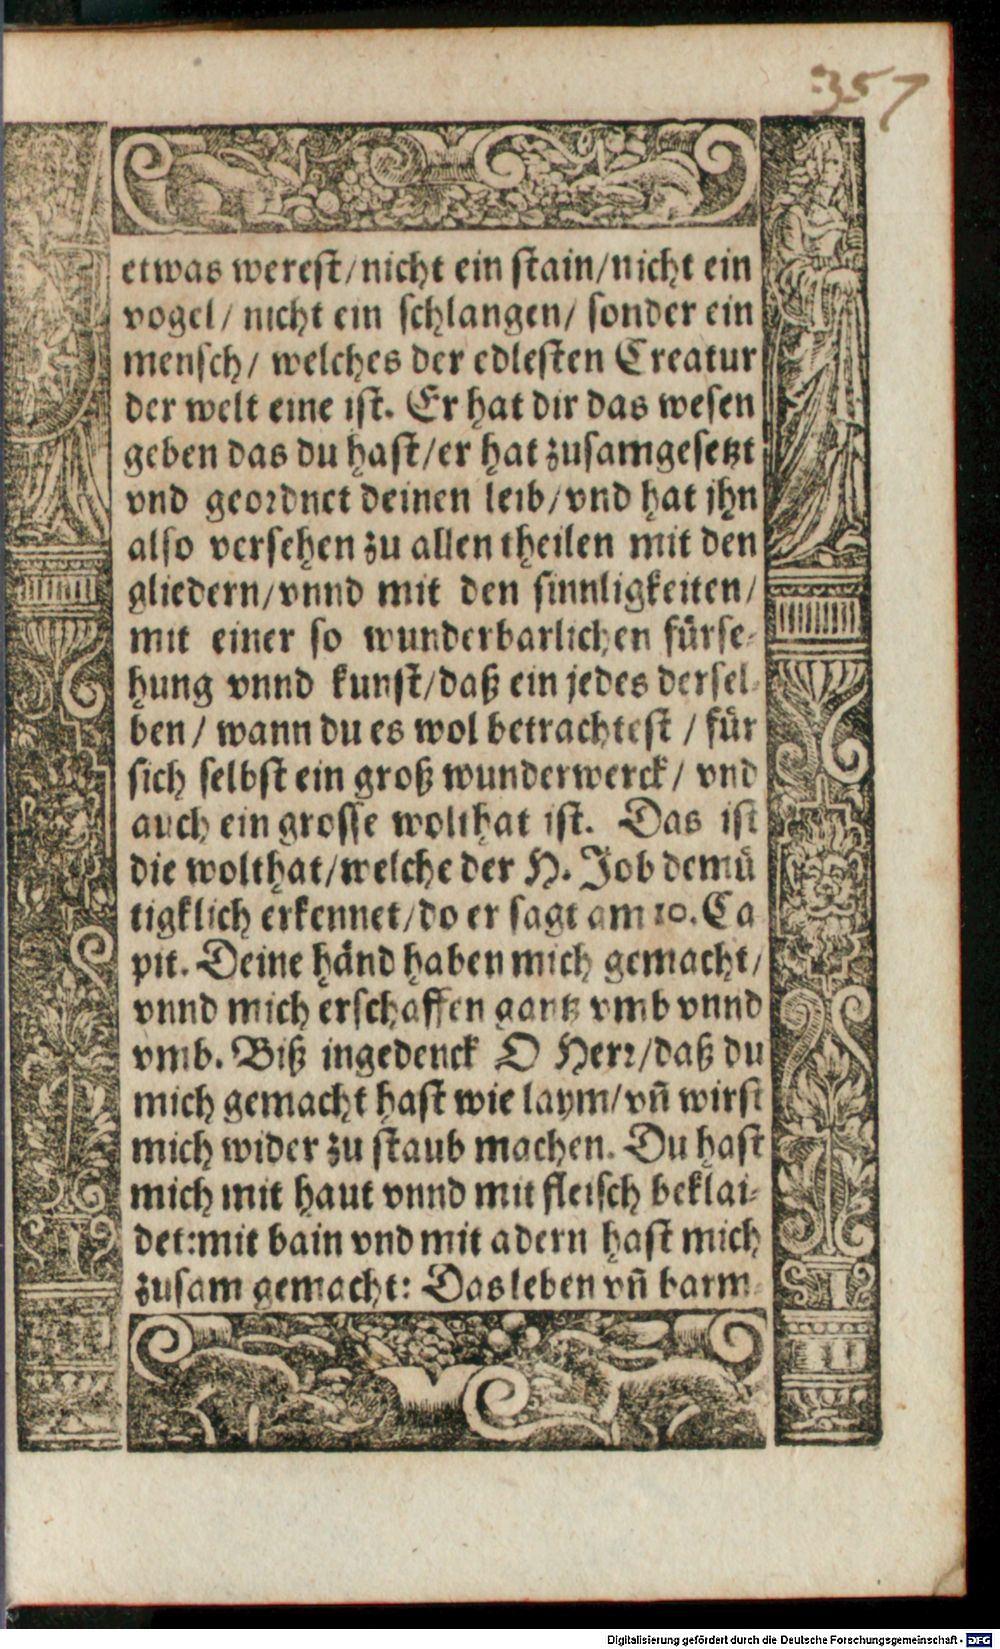 357
etwas werest/nicht ein stain/nicht ein
vogel/ nicht ein schlangen/ sonder ein
mensch/ welches der edlesten Creatur
der welt eine ist. Er hat dir das wesen
geben das du hast/er hat zusamgesetzt
vnd geordnet deinen leib/vnd hat jhn
also versehen zu allen theilen mit den
gliedern/vnnd mit den sinnligkeiten/
mit einer so wunderbarlichen fürse-
hung vnnd kunst/daß ein jedes dersel-
ben/ wann du es wol betrachtest / für
sich selbst ein groß wunderwerck/ vnd
auch ein grosse wolthat ist. Das ist
die wolthat/welche der H. Job demü
tigklich erkennet/do er sagt am 10. Ca
pit. Deine händ haben mich gemacht/
vnnd mich erschaffen gantz vmb vnnd
vmb. Biß ingedenck O Herr/daß du
mich gemacht hast wie laym/vñ wirst
mich wider zu staub machen. Du hast
mich mit haut vnnd mit fleisch beklai-
det:mit bain vnd mit adern hast mich
zusam gemacht: Das leben vñ barm-
Digitalisierung gefördert durch die Deutsche Forschungsgemeinschaft - DFG